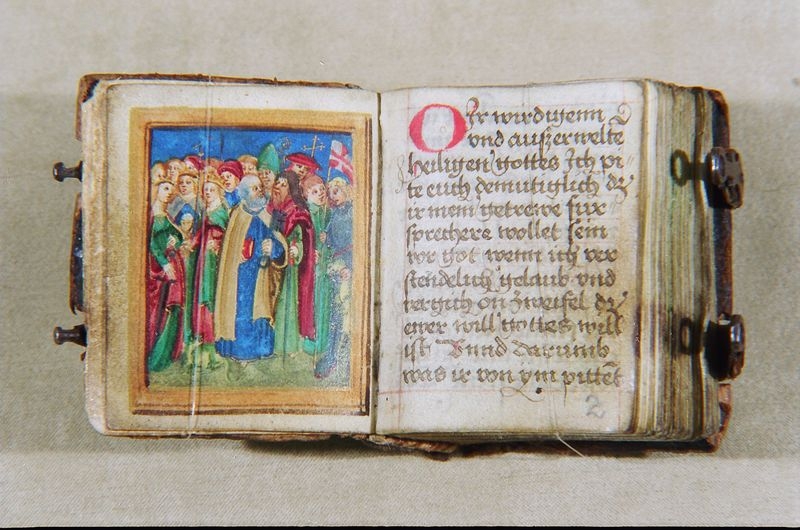 O Ir wirdigenn
vnd außerwelte
heiligen gottes Ich pi-
te euch demutiglich dz
ir mein getrewe für-
sprechere wollet sein
vor got wenn ich ver
stendelich gelaub vnd
vergich on zweifel dz
ewer will gottes will
ist Vnnd darumb
was ir von ym pittet
2